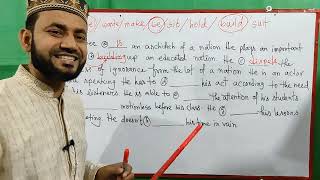 /write/make be sit/hold build suit
@ is an architect of a nation. He plays an important
building up an educated nation. He dispels the
of ignorance form the lot of a nation. He is an actor
speaking. He has to his act according to the need
his listeners. He is able to the attention of his students
motionless before his class. He his lessons
He doesn't his time in vain